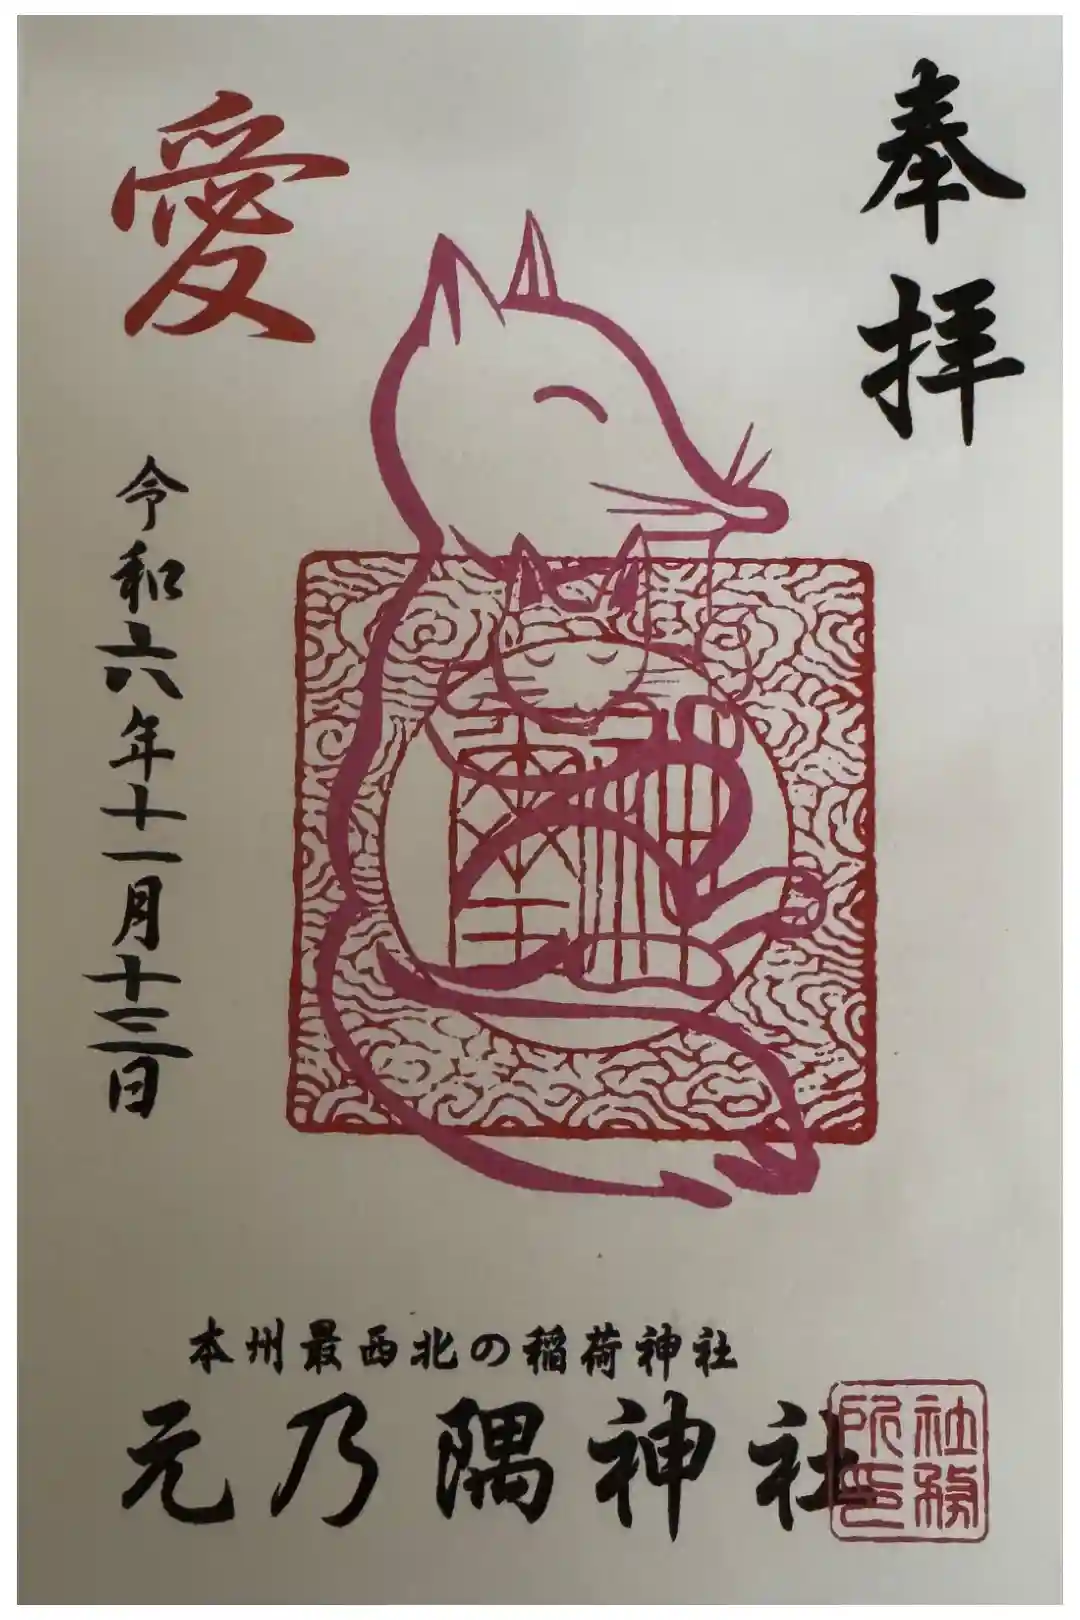 奉拝
愛
令和六年十一月十三日
神璽
本州最西北の稲荷神社
元乃隅神社
社務
所印